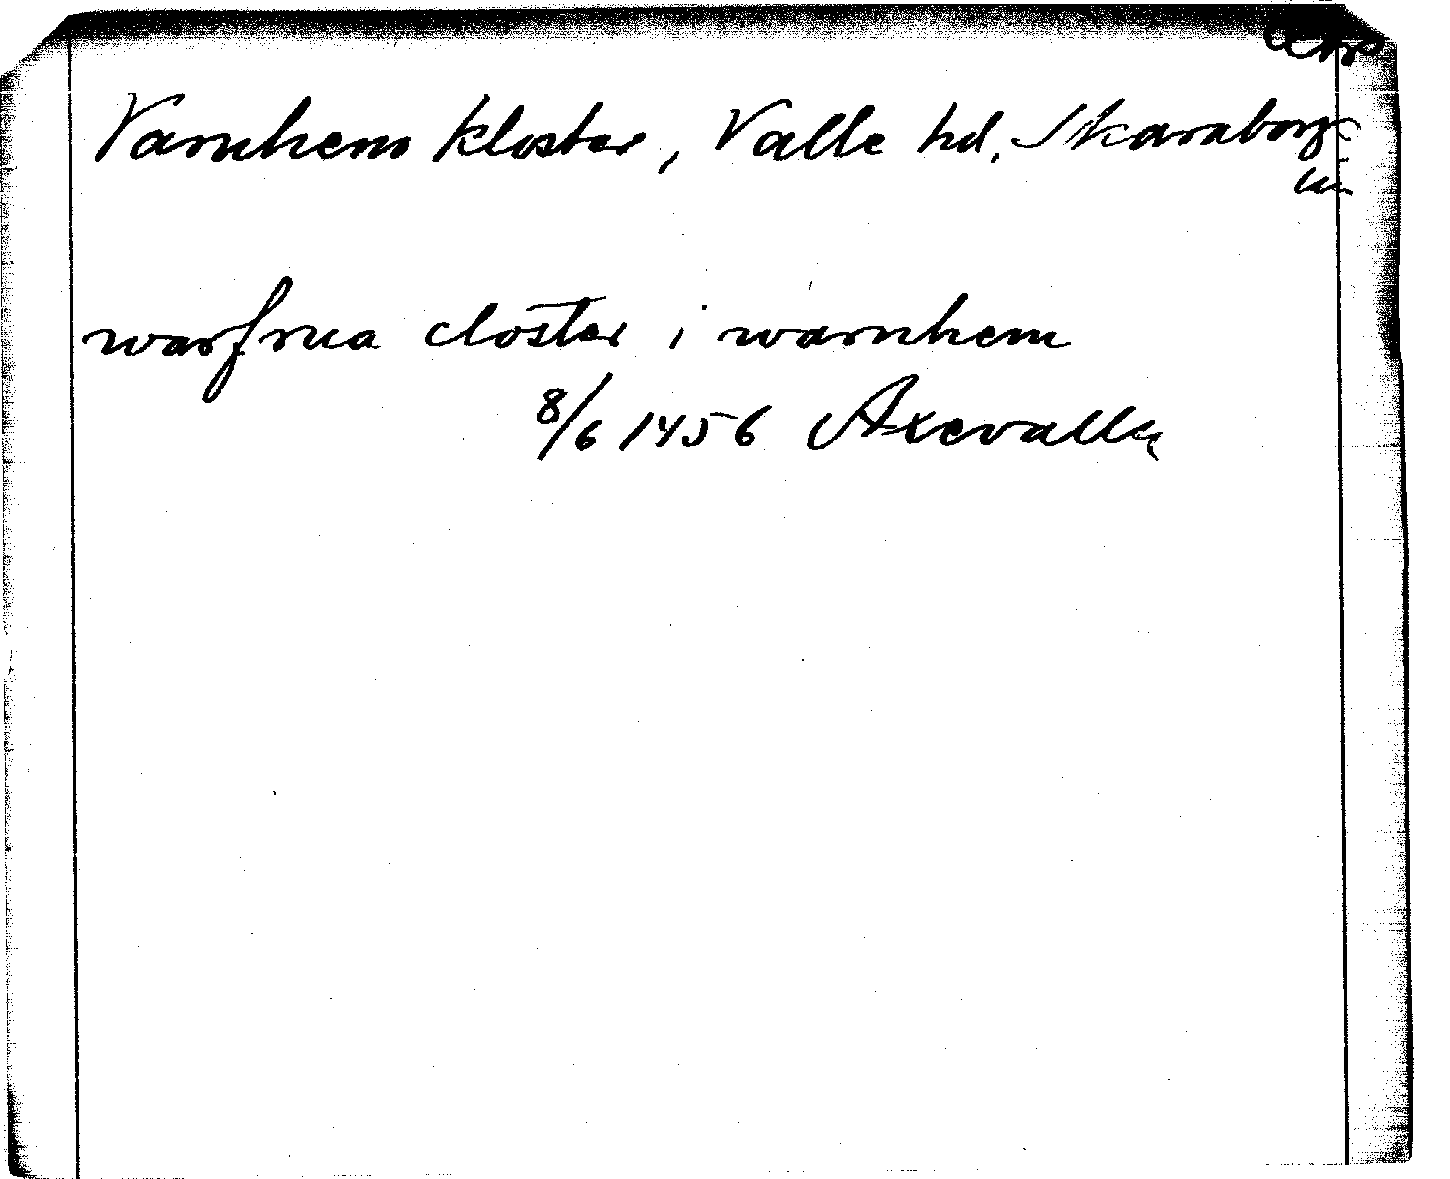 Varnhems kloster, Valle hd, Skaraborgs
län
warfrua closter i warnhem
8/6 1456 Axevalla